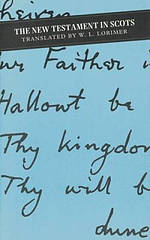 THE NEW TESTAMENT IN SCOTS
TRANSLATED BY W. L. LORIMER
heiven
ur Faither i
Hallowt be
Thy kingdom
Thy will b
dune